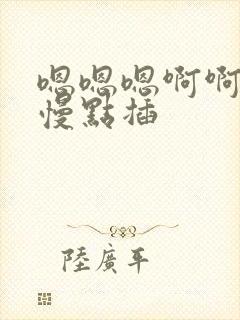 嗯嗯嗯啊啊
慢點插
陸廣平